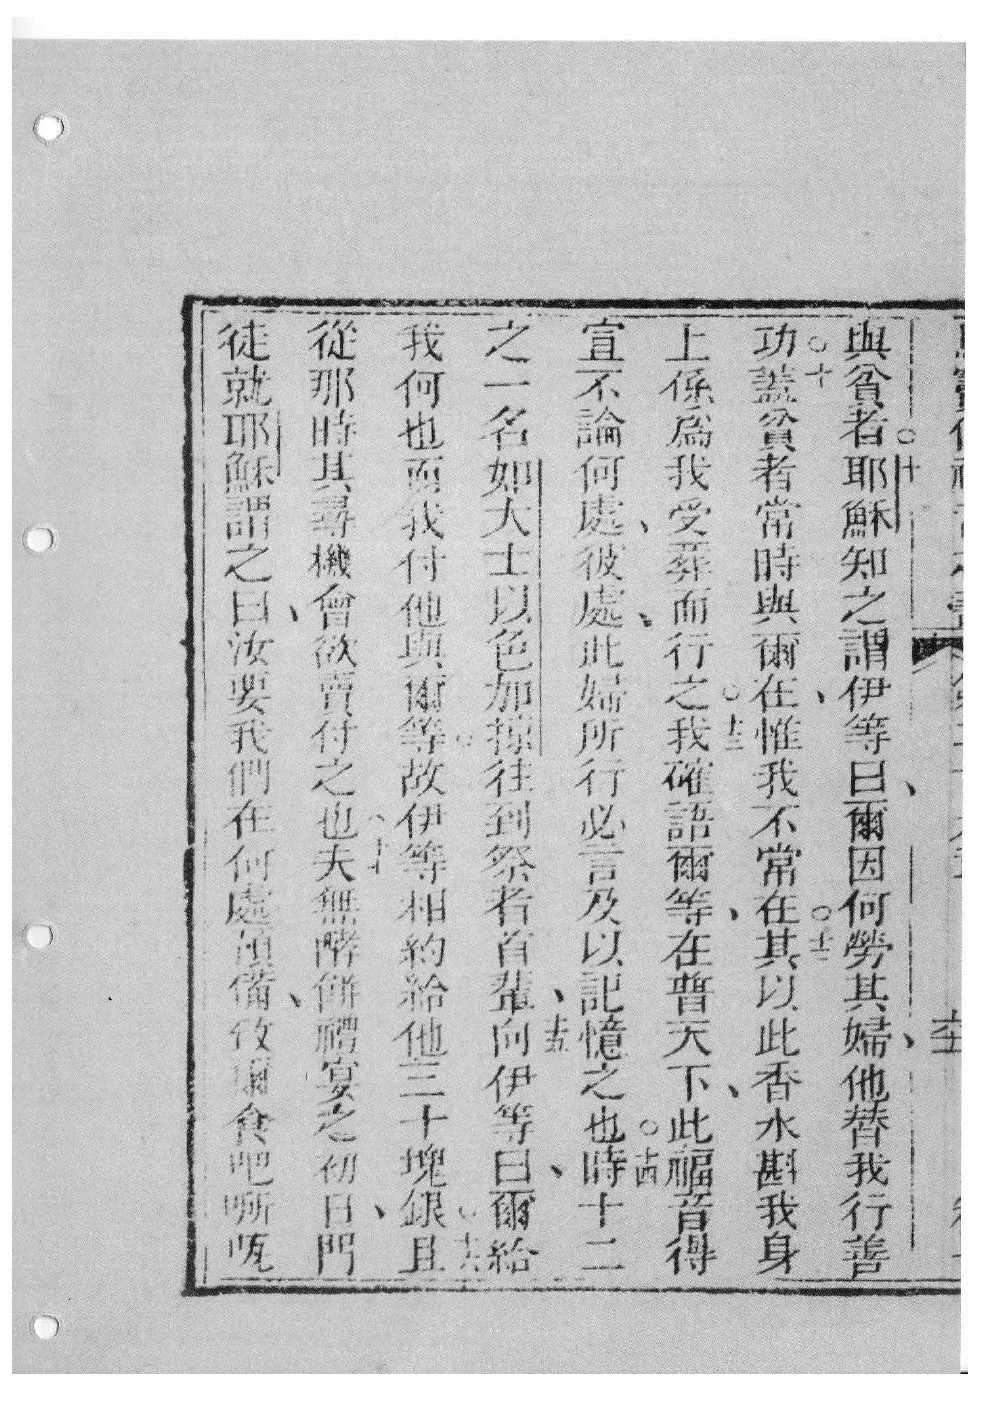 與貧者○十耶穌知之謂伊等曰、爾因何勞其婦、他替我行善
功○十蓋貧者常時與爾在、惟我不常在○十二其以此香水斟我身
上係爲我受葬而行之○十三我確語爾等、在普天下、此福音得
宣不論何處、彼處、此婦所行必言及以記憶之也○十四時十二
之一名如大士以色加掠往到祭者首輩、十五向伊等曰、爾給
我何也而我付他與爾等○故伊等相約給他三十塊銀○十六且
從那時其尋機會欲賣付之也○十夫無酵餅禮宴之初日、門
徒就耶穌謂之曰、汝要我們在何處預備、致爾食吧唦呱